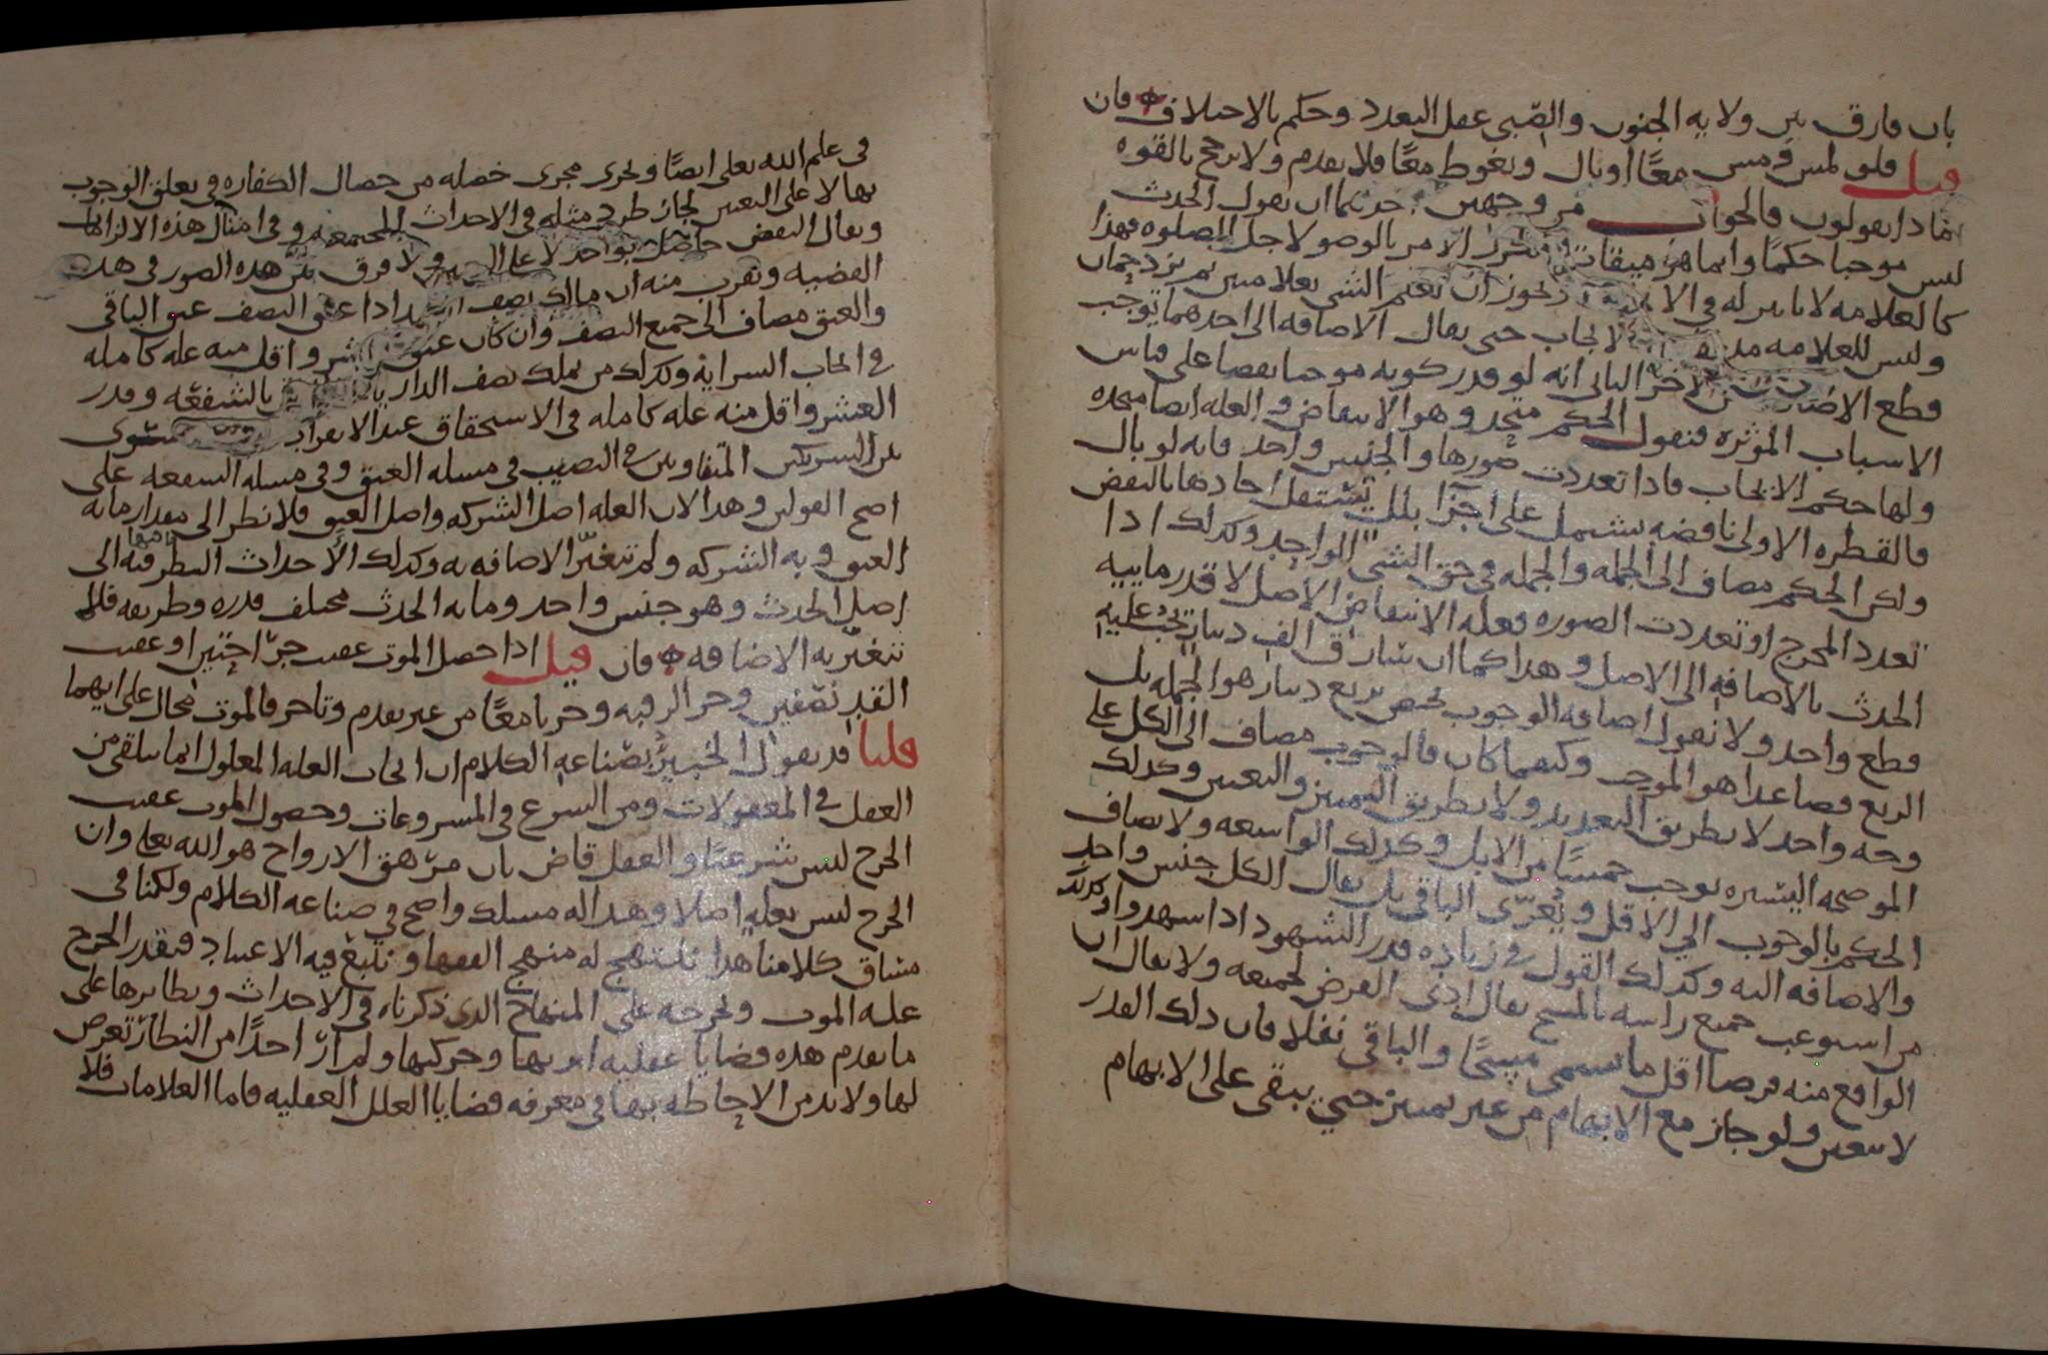 بان فارق بين ولاية الجنون والصبي عقل التعدد وحكم بالاختلاف فان
قيل فلو لمس ومس معًا او بال وتغوط معًا فلا تقدم ولا ترجح بالقوة
فماذا تقولون فالجواب من وجهين احدهما ان نقول الحدث
ليس موجبا حكمًا وانما هو ميقات الامر بالوضو لاجل الصلوه فهذا
كالعلامه لا تاثير له في ويجوز ان نعلم الشي بعلامتين ثم تزدحمان
وليس للعلامه الايجاب حتى يقال الاضافه الى احدهما توجب
قطع الاضافة عن الاخر الثاني انه لو قدر كونه موجبا نقضا على قياس
الاسباب المؤثره فنقول الحكم متحد وهو الانتقاض والعله ايضا متحده
ولها حكم الايجاب فاذا تعددت صورها والجنس واحد فانه لو بال
فالقطره الاولى ناقضه يشتمل على اجزآ بلل تستقل احادها بالنقض
ولكن الحكم مضاف الى الجمله والجمله في حق الشي الواحد وكذلك اذا
تعدد المخرج او تعددت الصوره فعله الانتقاض الاصل لا قدر ماييه
الحدث بالاضافه الى الاصل وهذا كما ان سارق الف دينار يجب عليه
قطع واحد ولا نقول اضافه الوجوب تختص بربع دينار هو الجمله بل
الربع فصاعدا هو الموجب وكيفما كان فالوجوب مضاف الى الكل على
وجه واحد لا بطريق التعديد ولا بطريق التمييز والتعيين وكذلك
الموضحه اليسيره توجب خمسًا من الابل وكذلك الواسعه ولا يضاف
الحكم بالوجوب الى الاقل ويُعرّى الباقي بل يقال الكل جنس واحد
والاضافه اليه وكذلك القول في زياده قدر الشهود اذا شهدوا وكذلك
من استوعب جميع راسه بالمسح يقال ادى الفرض بجميعه ولا يقال ان
الواقع منه فرضا اقل ما يسمى مسحًا والباقي نفلا فان ذلك القدر
لا يتعين ولو جاز مع الابهام من غير تمييز حتى يبقى على الابهام
في علم الله تعلى ايضًا ويجرى مجرى خصله من خصال الكفاره في تعلق الوجوب
بها لا على التعيين لجاز طرد مثله في الاحداث المجتمعه وفي امثال هذه الالزامات
ويقال النقض حاصل بواحد لا على ولا فرق بين هذه الصور في هذه
القضيه ويقرب منه ان مالك نصف العبد اذا عتق النصف عتق الباقي
والعتق مضاف الى جميع النصف وان كان عتق العشر واقل منه عله كامله
في ايجاب السراية وكذلك من يملك نصف الدار بالشفعه وقدر
العشر واقل منه عله كامله في الاستحقاق عند الانفراد يسوى
بين الشريكين المتفاوتين في النصيب في مسله العتق وفي مسله الشفعه على
اصح القولين وهذا لان العله اصل الشركه واصل العتق فلا نظر الى مقدار ما به
العتق وبه الشركه ولم تتغيّر الاضافه به وكذلك الاحداث النظر فيها الى
اصل الحدث وهو جنس واحد وما به الحدث مختلف قدره وطريقه فلا
تتغيّر به الاضافه فان قيل اذا حصل الموت عقيب جرّاحتين او عقيب
القد نصفين وحز الرقبه وحزبا معًا من غير تقدم وتاخر فالموت محال على ايهما
قلنا قد يقول الخبير بصناعه الكلام ان ايجاب العله المعلول انما يتلقى من
العقل في المعقولات ومن الشرع في المشروعات وحصول الموت عقيب
الجرح ليس شرعيًا والعقل قاض بان مزهق الارواح هو الله تعلى وان
الجرح ليس بعله اصلا وهذا له مسلك واضح في صناعه الكلام ولكنا في
مساق كلامنا هذا ننتهج له منهج الفقها ونتبع فيه الاعتياد فنقدر الجرح
عله الموت ونخرجه على المنهاج الذي ذكرناه في الاحداث ونظايرها على
ما تقدم هذه قضايا عقليه وحركتها ولم ار احدًا من النظار تعرض
لها ولا بد من الاحاطه بها في معرفه قضايا العلل العقليه فاما العلامات فلا